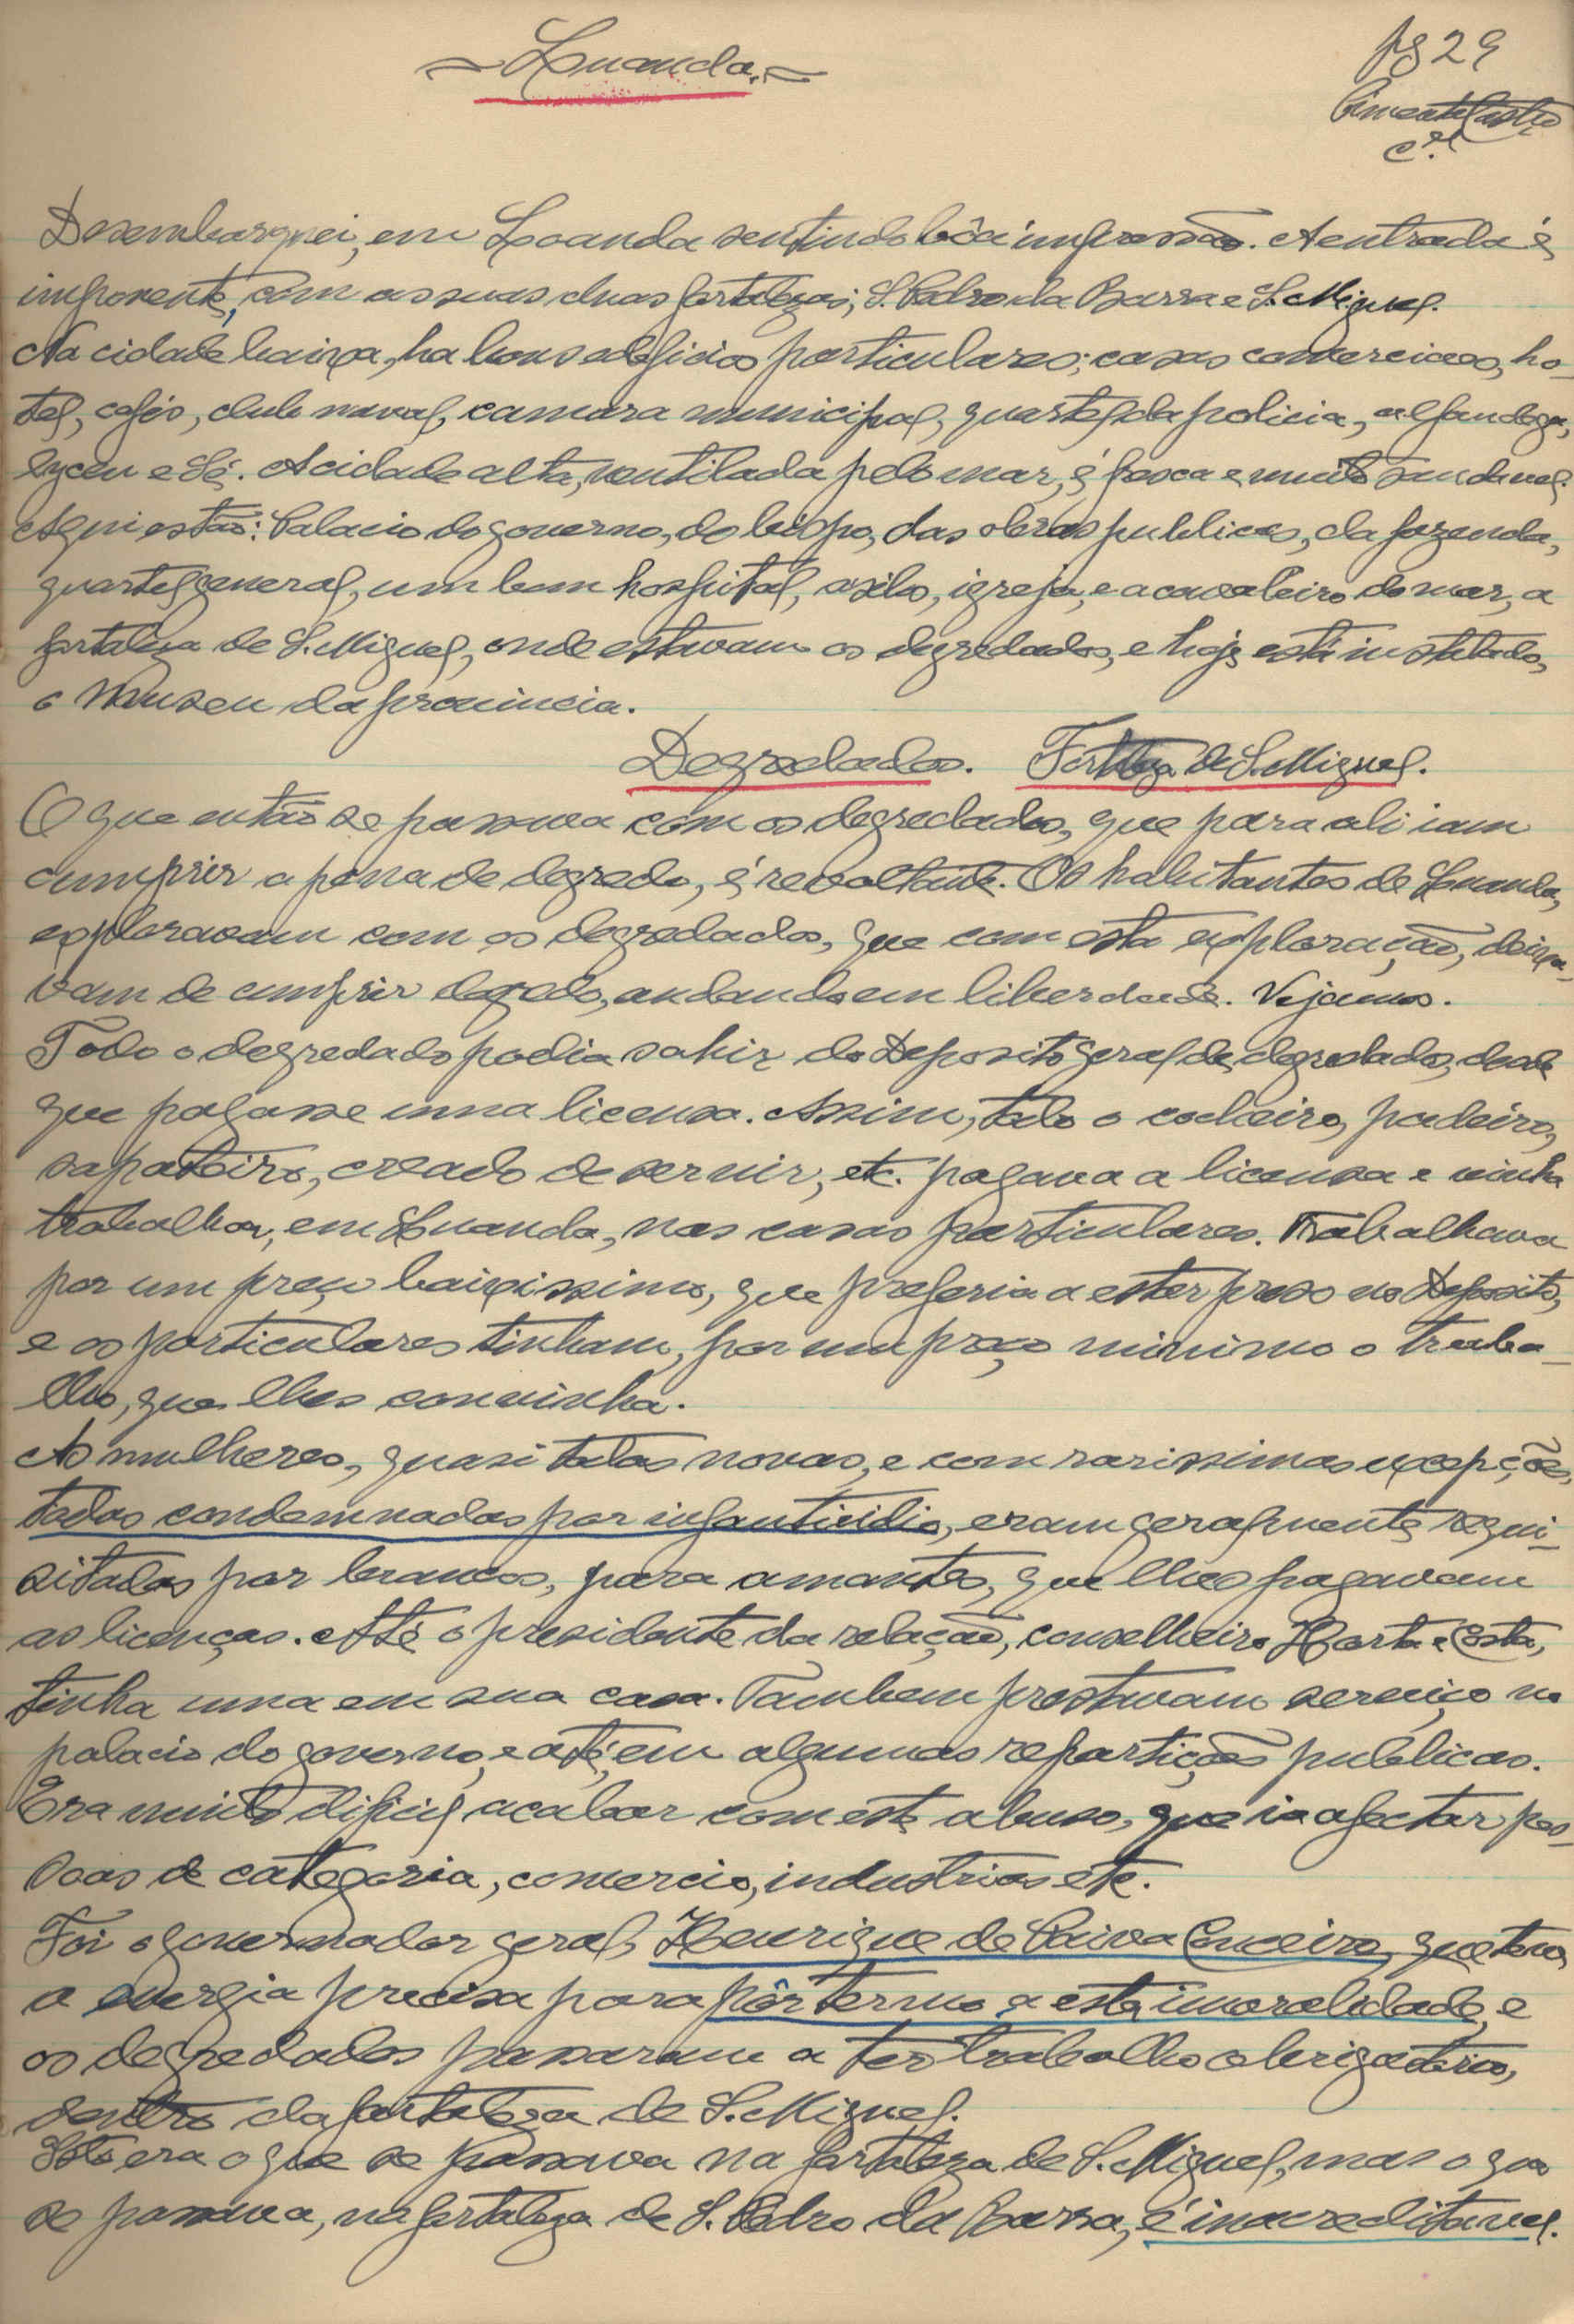 Luanda.
fg 29
Pimenta Castro
C.el
Desembarquei, em Loanda sentindo bôa impressão. A entrada é
imponente, com as suas duas fortalezas; S. Pedro da Barra e S. Miguel.
Na cidade baixa, ha bons edeficios particulares; casas comerciaes, ho-
tel, cafés, club naval, camara municipal, quartel da policia, alfandega,
lyceu e Sé. A cidade alta, ventilada pelo mar, é fresca e muito saudavel.
Aqui estão: Palacio do governo, do bispo, das obras publicas, da fazenda,
quartel general, um bom hospital, asilo, igreja, e a cavaleiro do mar, a
fortaleza de S. Miguel, onde estavam os degredados, e hoje está instalado,
o Museu da provincia.
Degredados. Fortaleza de S. Miguel.
O que então se passava com os degredados, que para ali iam
cumprir a pena de degredo, é revoltante. Os habitantes de Luanda,
exploravam com os degredados, que com esta exploração, deixa-
vam de cumprir degredo, andando em liberdade. Vejamos.
Todo o degredado podia sahir do Deposito geral de degredados, desde
que pagasse uma licensa. Assim, todo o cocheiro, padeiro,
sapateiro, creado de servir, etc. pagava a licensa e vinha
trabalhar, em Luanda, nas casas particulares. Trabalhava
por um preço baixissimo, que preferia a estar preso no Deposito,
e os particulares tinham, por um preço minimo o traba-
lho, que lhes convinha.
As mulheres, quasi todas novas, e com rarissimas excepções,
todas condemnadas por infanticidio, eram geralmente requi-
sitadas por brancos, para amantes, que lhes pagavam
as licenças. Até o presidente da relação, conselheiro Horta e Costa,
tinha uma em sua casa. Tambem prestavam serviço no
palacio do governo, e até, em algumas repartições publicas.
Era muito dificil acabar com este abuso, que ia afectar pes-
soas de categoria, comercio, industrias etc.
Foi o governador geral, Henrique de Paiva Couceiro, que teve
a energia precisa para pôr termo a esta imoralidade, e
os degredados passaram a ter trabalho obrigatorio,
dentro da fortaleza de S. Miguel.
Isto era o que se passava na fortaleza de S. Miguel, mas o que
se passava, na fortaleza de S. Pedro da Barra, é inacreditavel.